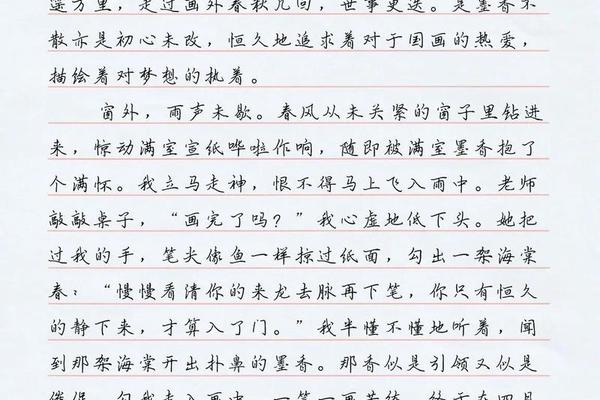 遥方里，走过画外春秋几回，世事更迭。是墨香不
散亦是初心未改，恒久地追求着对于国画的热爱，
描绘着对梦想的执着。
窗外，雨声未歇。春风从未关紧的窗子里钻进
来，惊动满室宣纸哗啦作响，随即被满室墨香抱了
个满怀。我立马走神，恨不得马上飞入雨中。老师
敲敲桌子，“画完了吗？”我心虚地低下头。她把
过我的手，笔尖像鱼一样掠过纸面，勾出一架海棠
春：“慢慢看清你的来龙去脉再下笔，你只有恒久
的静下来，才算入了门。”我半懂不懂地听着，闻
到那架海棠开出扑鼻的墨香。那香似是引领又似是
催促，勾我走入画中，一笔一画苦练，终于在四月